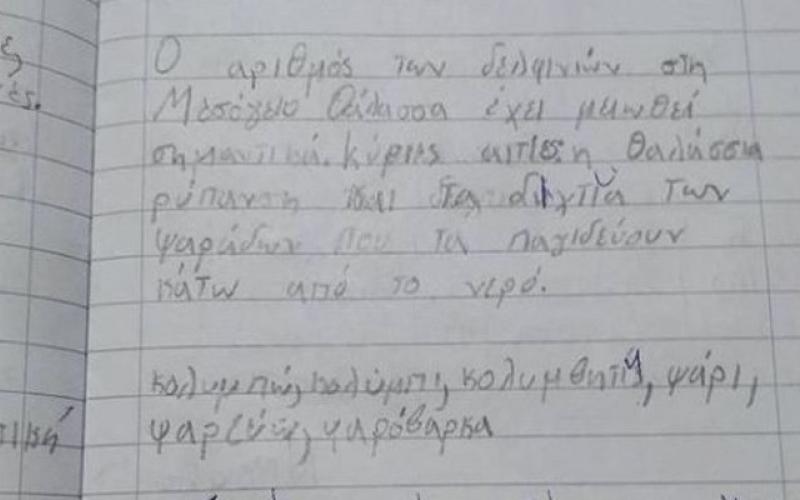 ς
ές.
Ο αριθμός των δελφινιών στη
Μεσόγειο Θάλασσα έχει μειωθεί
σημαντικά. Κύριες αιτίες η θαλάσσια
ρύπανση και τα δίχτυα των
ψαράδων που τα παγιδεύουν
κάτω από το νερό.
κολυμπώ, κολύμπι, κολυμβητής, ψάρι,
ψαρεύω, ψαρόβαρκα